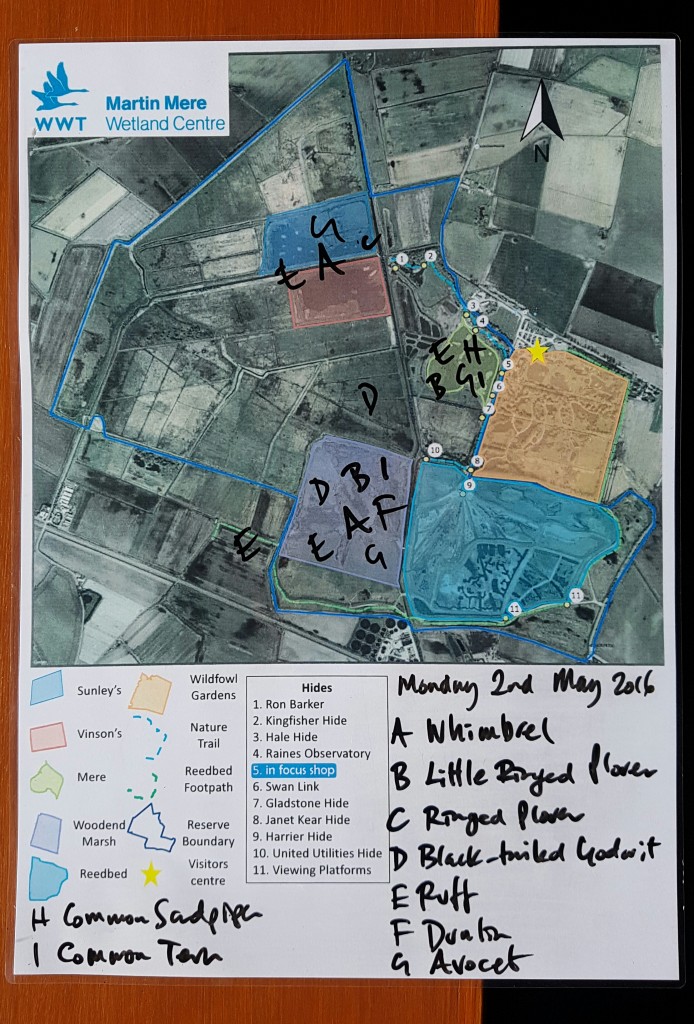 WWT
Martin Mere
Wetland Centre
N
G
E A C
1
2
3
4
E H
B G I
5
6
7
D
10
8
9
D B I
E A F
G
E
11
11
Sunley's
Wildfowl
Gardens
Vinson's
Nature
Trail
Mere
Reedbed
Footpath
Woodend
Marsh
Reserve
Boundary
Reedbed
Visitors
centre
Hides
1. Ron Barker
2. Kingfisher Hide
3. Hale Hide
4. Raines Observatory
5. in focus shop
6. Swan Link
7. Gladstone Hide
8. Janet Kear Hide
9. Harrier Hide
10. United Utilities Hide
11. Viewing Platforms
Monday 2nd May 2016
A Whimbrel
B Little Ringed Plover
C Ringed Plover
D Black-tailed Godwit
E Ruff
F Dunlin
G Avocet
H Common Sandpiper
I Common Tern